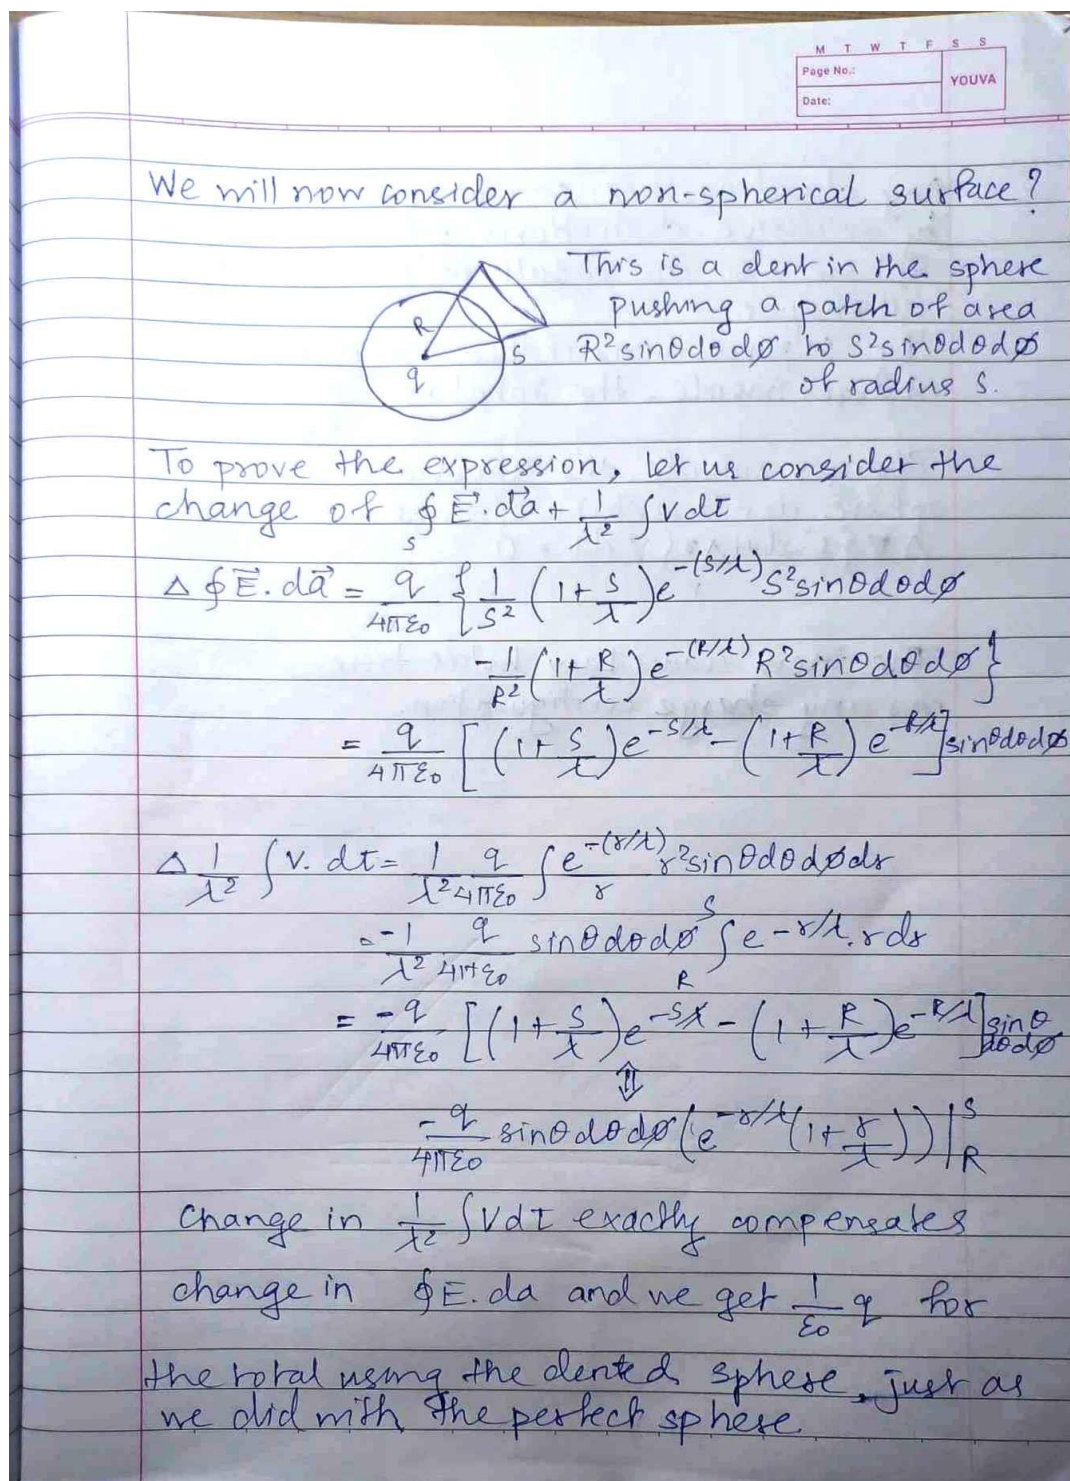 M T W T F S S
Page No.:
YOUVA
Date:
We will now consider a non-spherical surface?
This is a dent in the sphere
pushing a patch of area
R²sinθdθdø to S²sinθdθdø
of radius S.
R
q
S
To prove the expression, let us consider the
change of ∮_S E⃗.da⃗ + 1/λ² ∫Vdτ
Δ∮E⃗.da⃗ = q/4πε₀ {1/S² (1+S/λ)e^-(S/λ) S²sinθdθdø
-1/R² (1+R/λ)e^-(R/λ) R²sinθdθdø}
= q/4πε₀ [(1+S/λ)e^-S/λ - (1+R/λ)e^-R/λ]sinθdθdø
Δ 1/λ² ∫V.dτ = 1/λ² q/4πε₀ ∫e^-(r/λ)/r r²sinθdθdødr
= -1/λ² q/4πε₀ sinθdθdø ∫_R^S e-r/λ.rdr
= -q/4πε₀ [(1+S/λ)e^-S/λ - (1+R/λ)e^-R/λ]sinθdθdø
⇕
-q/4πε₀ sinθdθdø(e^-r/λ(1+r/λ))|_R^S
Change in 1/λ² ∫Vdτ exactly compensates
change in ∮E.da and we get 1/ε₀ q for
the total using the dented sphere, just as
we did with the perfect sphere.